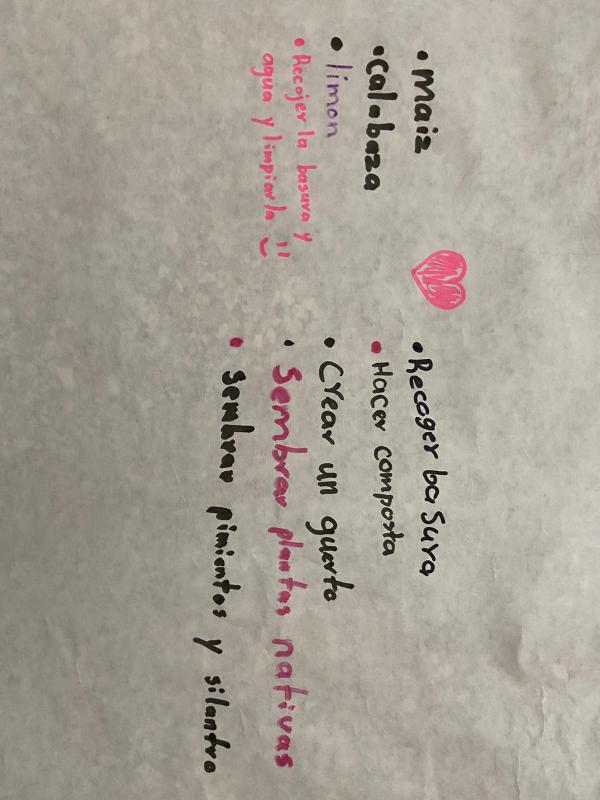 • maiz
• calabaza
• limon
• Recojer la basura y
agua y limpiarla
• Recoger basura
• Hacer composta
• Crear un guerto
• Sembrar plantas nativas
• Sembrar pimientos y silantro